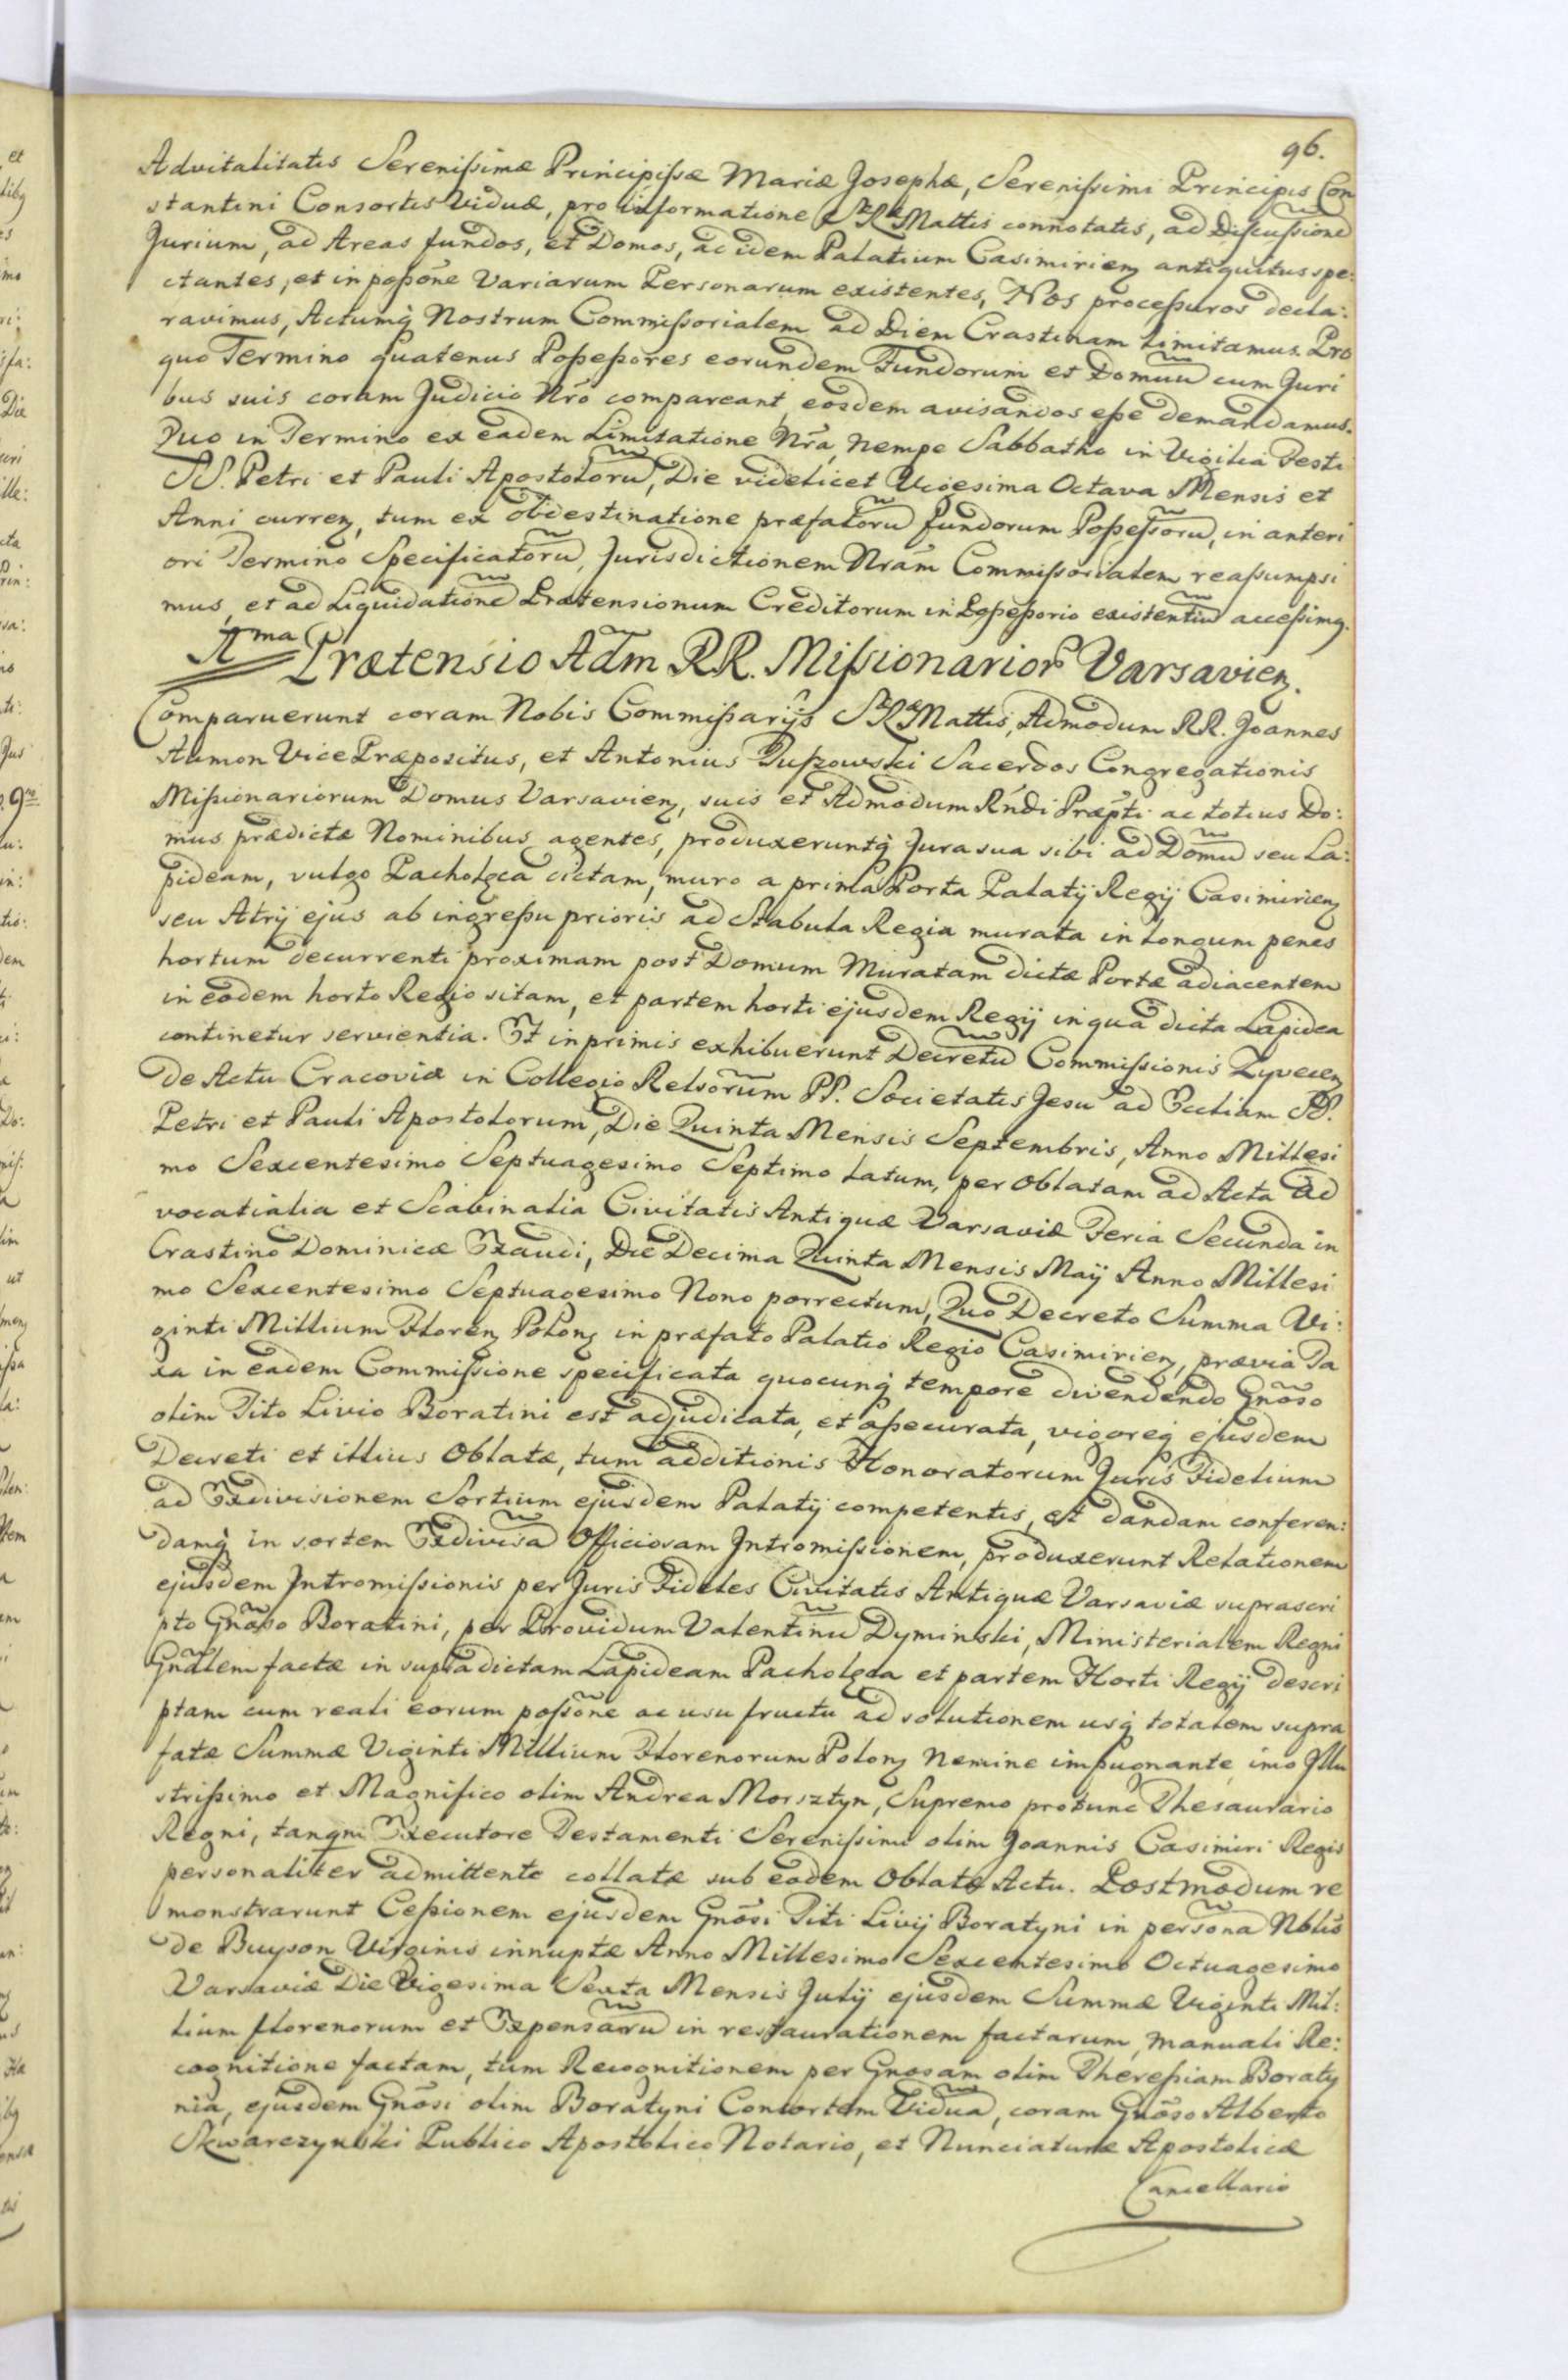 96.
Advitalitatis Serenissimæ Principissæ Mariæ Josephæ, Serenissimi Principis Con
stantini Consortis Viduæ, pro informatione S. R. Mattis connotatis, ad Discussione
Jurium, ad Areas fundos, et Domos, ad idem Palatium Casimirien antiquitus spe:
ctantes, et in possone Variarum Personarum existentes, Nos processuros decla:
ravimus, Actumq Nostrum Commissorialem ad Diem Crastinam limitamus. Pro
quo Termino quatenus Possessores eorundem Fundorum et Domuu cum Juri
bus suis coram Judicio Nro compareant, eosdem avisandos esse demandamus.
Quo in Termino ex eadem Limitatione Nra, nempe Sabbatho in Vigilia Festi
SS. Petri et Pauli Apostoloru, Die videlicet Vigesima Octava Mensis et
Anni curren, tum ex obdestinatione præfatoru fundorum Possessoru, in anteri
ori Termino Specificatoru, Jurisdictionem Nram Commissorialem reassumpsi
mus, et ad Liquidatione Prætensionum Creditorum in Possessorio existentiu accessimq.
Prætensio Adm RR. Missionarior Varsavien.
Comparuerunt coram Nobis Commissarijs S R Mattis, Admodum RR. Joannes
Aumon Vice Præpositus, et Antonius Tuszowski Sacerdos Congregationis
Missionariorum Domus Varsavien, suis et Admodum Rndi Præpti ac totius Do:
mus prædictæ Nominibus agentes, produxeruntq Jura sua sibi ad Domu seu La:
pideam, vulgo Pacholęca dictam, muro a prima Porta Palatij Regij Casimirien
seu Atrij ejus ab ingressu prioris ad Stabula Regia murata in longum penes
hortum decurrenti proximam post Domum Muratam dictæ Portæ adiacentem
in eodem horto Regio sitam, et partem horti ejusdem Regij in qua dicta Lapidea
continetur servientia. Et inprimis exhibuerunt Decretu Commissionis Zyvecen
de Actu Cracoviæ in Collegio Relsorum PP. Societatis Jesu ad Eccliam SS.
Petri et Pauli Apostolorum, Die Quinta Mensis Septembris, Anno Millesi
mo Sexcentesimo Septuagesimo Septimo latum, per Oblatam ad Acta Ad
vocatialia et Scabinalia Civitatis Antiquæ Varsaviæ Feria Secunda in
Crastino Dominicæ Exaudi, Die Decima Quinta Mensis Maij Anno Millesi
mo Sexcentesimo Septuagesimo Nono porrectum, Quo Decreto Summa Vi:
ginti Millium Floren Polon in præfato Palatio Regio Casimirien, prævia Ta
xa in eadem Commissione specificata quocunq tempore divendendo Gnoso
olim Tito Livio Boratini est adjudicata, et assecurata, vigoreq ejusdem
Decreti et illius Oblatæ, tum additionis Honoratorum Juris Fidelium
ad Exdivisionem Sortium ejusdem Palatij competentis, est dandam conferen:
damq in sortem Exdivisa Officiosam Intromissionem, produxerunt Relationem
ejusdem Intromissionis per Juris Fideles Civitatis Antiquæ Varsaviæ suprascri
pto Gnoso Boratini, per Providum Valentinu Dyminski, Ministerialem Regni
Gnalem factæ in supradictam Lapideam Pacholęca et partem Horti Regij descri
ptam cum reali eorum possone ac usu fructu ad solutionem usq totalem supra
fatæ Summæ Viginti Millium Florenorum Polon nemine impugnante, imo Illu
strissimo et Magnifico olim Andrea Morsztyn, Supremo protunc Thesaurario
Regni, tanqm Executore Testamenti Serenissimi olim Joannis Casimiri Regis
personaliter admittente collatæ sub eodem Oblatæ Actu. Postmodum re
monstrarunt Cessionem ejusdem Gnosi Titi Livij Boratyni in persona Nblis
de Buyson Virginis innuptæ Anno Millesimo Sexcentesimo Octuagesimo
Varsaviæ Die Vigesima Sexta Mensis Julij ejusdem Summæ Viginti Mil:
lium florenorum et Expensaru in restaurationem factarum, manuali Re:
cognitione factam, tum Recognitionem per Gnosam olim Theressiam Boraty
nia, ejusdem Gnosi olim Boratyni Consortem Vidua, coram Gnoso Alberto
Skwarczynski Publico Apostolico Notario, et Nunciaturæ Apostolicæ
Cancellario